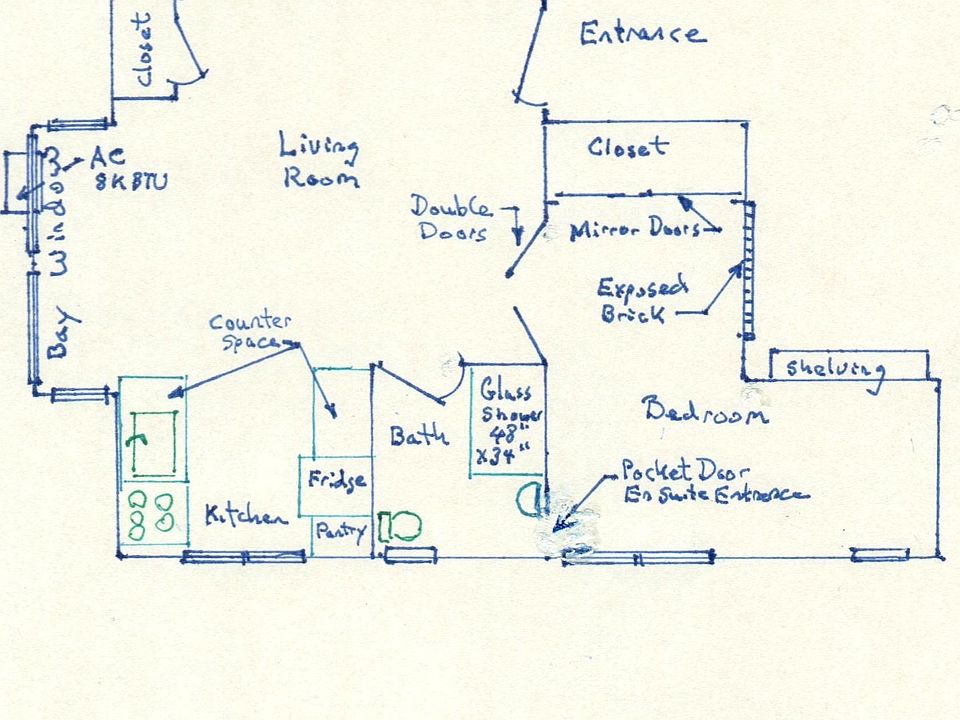 Closet
Entrance
Living
Room
Closet
AC
8K BTU
Bay Window
Double
Doors
Mirror Doors
Exposed
Brick
Counter
Space
Shelving
Glass
Shower
48"
x34"
Bedroom
Bath
Fridge
Pocket Door
En Suite Entrance
Kitchen
Pantry